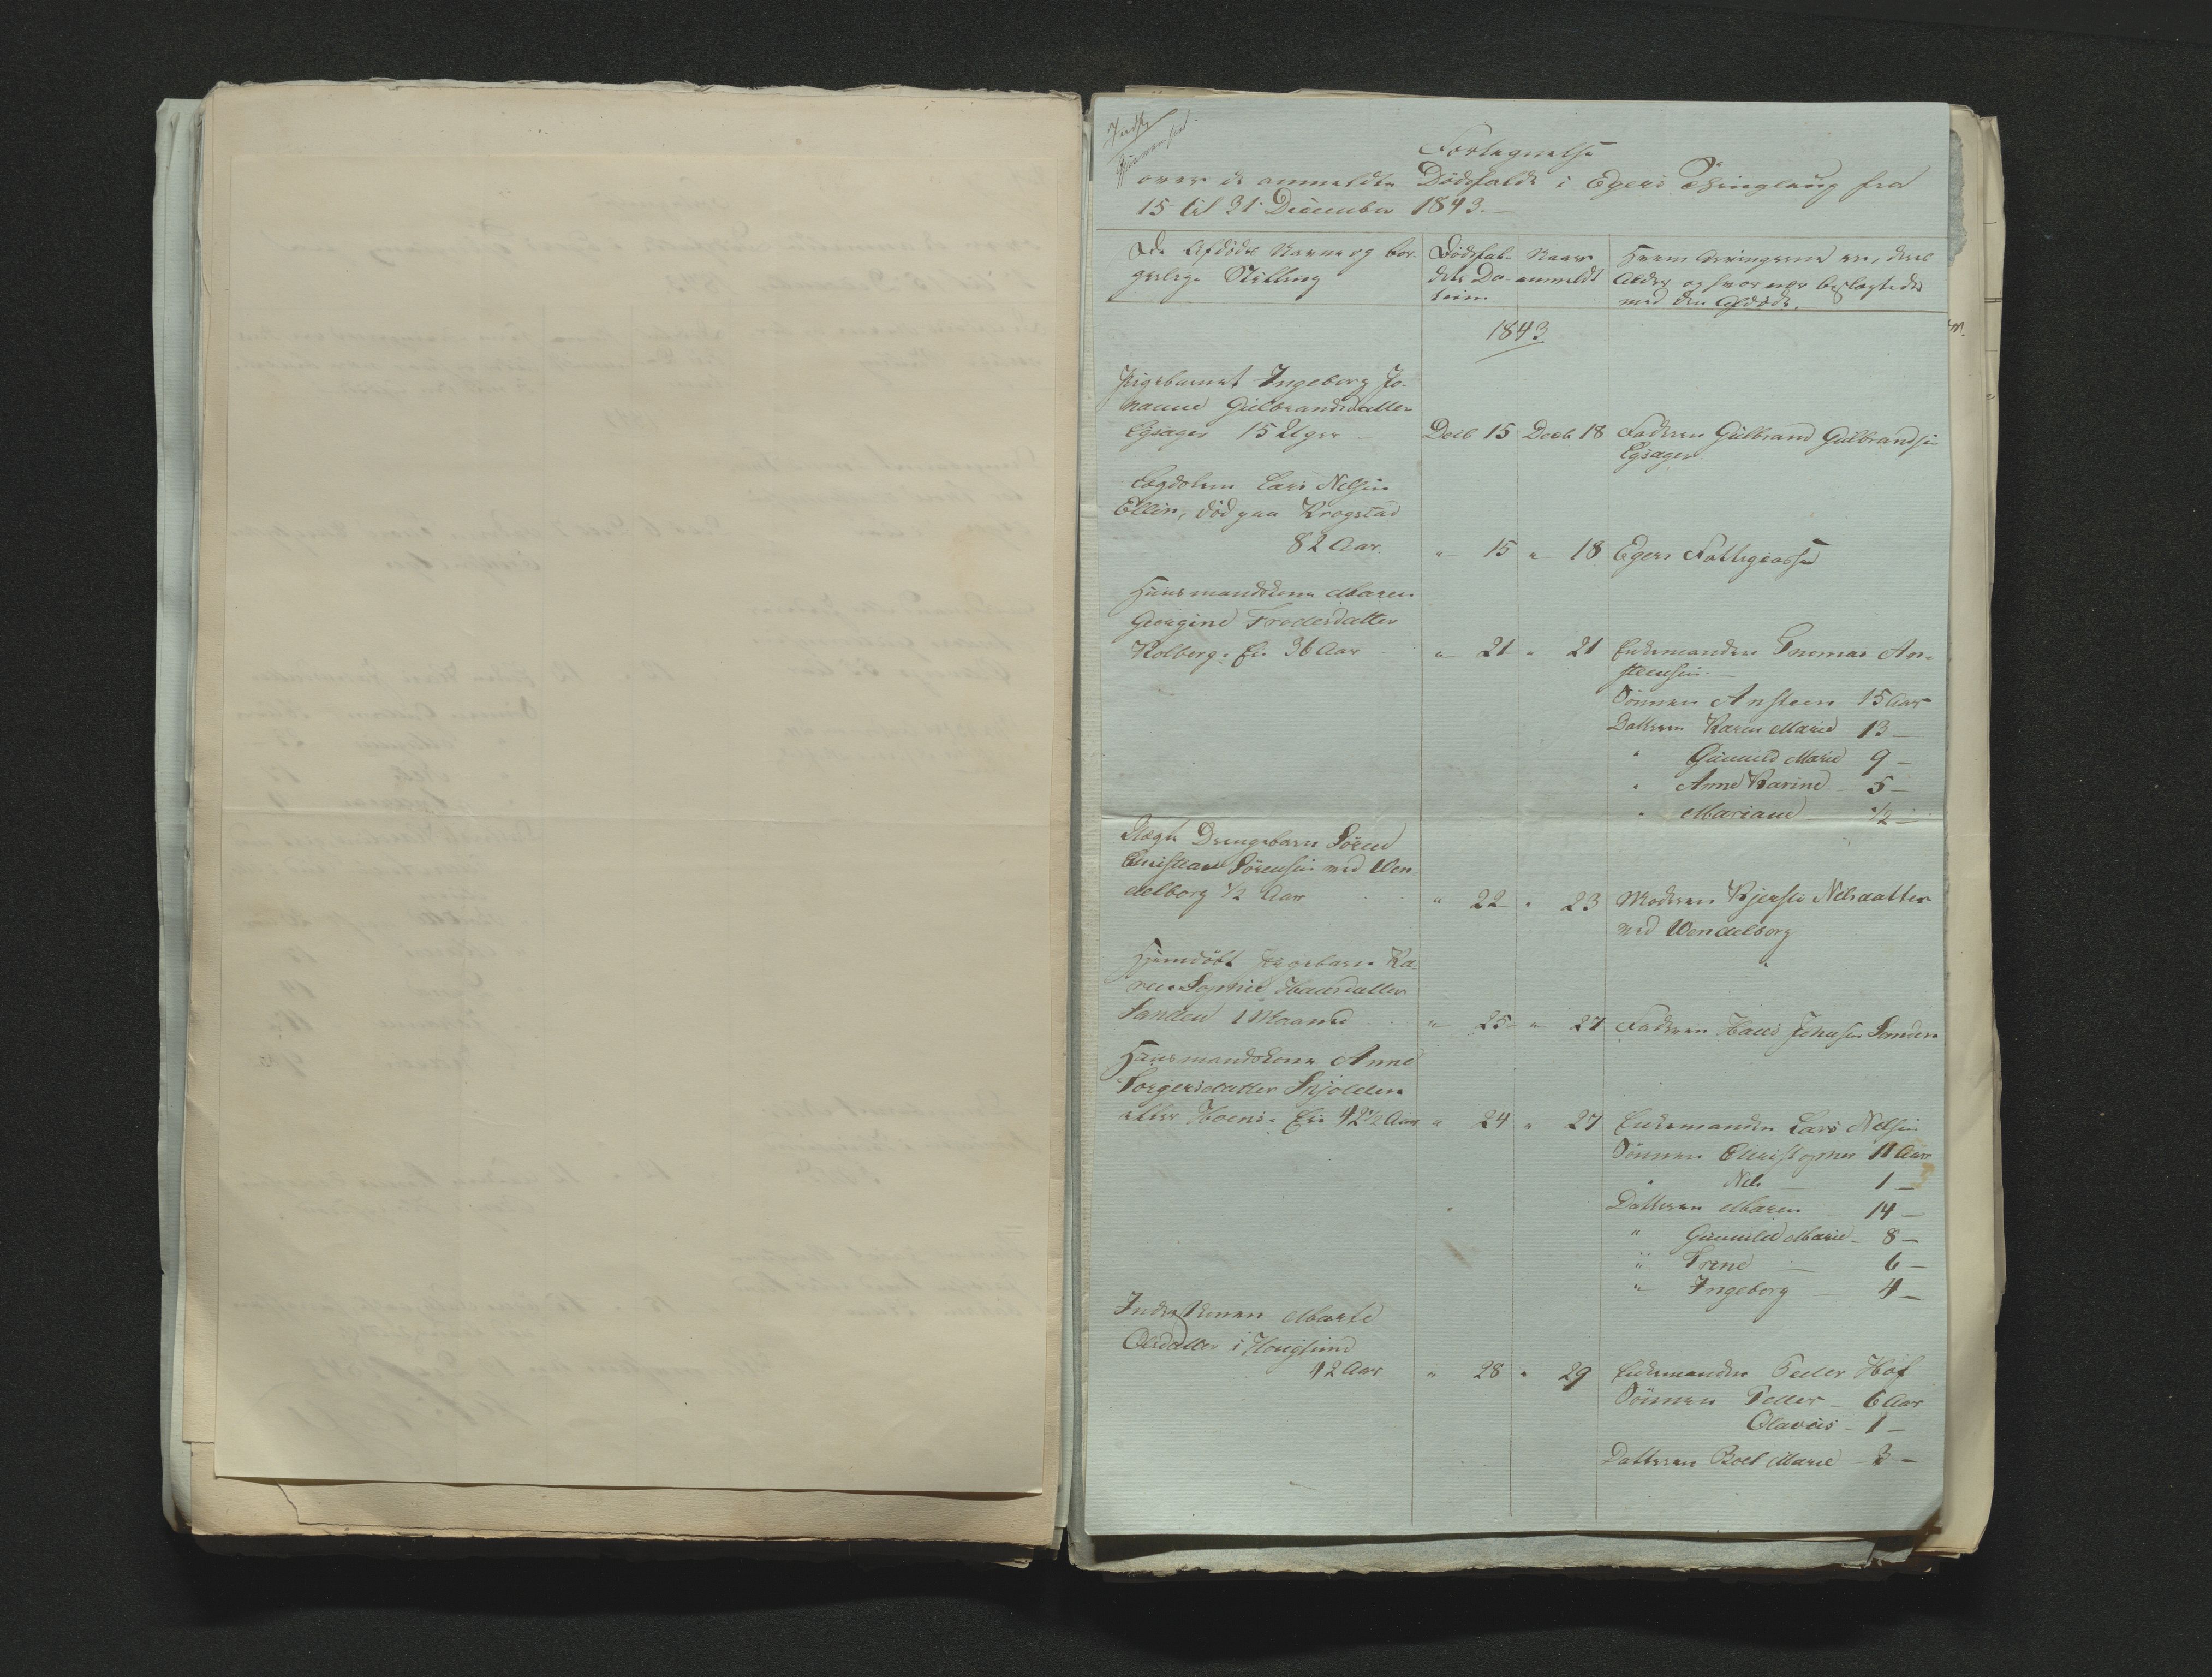 Fortegnelse
over de anmeldte Dødsfalde i Egers Thinglaug fra
15 til 31 December 1843.
De Afdødes Navne og bor-
gerlige Stilling
Dødsfal-
dets Da-
tum
Naar
anmeldt
Hvem Arvingerne er, deres
Alder og hvor nær beslægtede
med den Afdøde.
1843
Pigebarnet Ingeborg Jo-
hanne Gulbrandsdatter
Egsager 15 Uger
Decb 15 Decb 18 Faderen Gulbrand Gulbrandsen
Egsager
Lægdslem Lars Nilsen
Ellin, død paa Krogstad
82 Aar.
" 15 " 18 Egers Fattigcasse
Huusmandskone Maren
Georgine Troelsdatter
Kolberg. Ei. 36 Aar
" 21 " 21 Enkemanden Thomas An-
steensen
Sønnen Ansteen 15 Aar
Datteren Karen Marie 13 —
" Gunnild Marie 9 —
" Anne Karine 5 —
" Mariane 1/2 —
Uægte Drengebarn Søren
Christian Sørensen ved Ven-
delborg 1/2 Aar
" 22 " 23 Moderen Kjersti Nilsdatter
ved Vendelborg
Hjemdøbt Pigebarn Ka-
ren Sophie Hansdatter
Sanden 1 Maaned
" 25 " 27 Faderen Hans Jensen Sanden
Huusmandskone Anne
Torgersdatter Skjolden
eller Hoens. Ei. 42 1/2 Aar " 24 " 27 Enkemanden Lars Nilsen
Sønnen Christopher 11 Aar
" Nils 1 —
Datteren Maren 14 —
" Gunnild Marie 8 —
" Trine 6 —
" Ingeborg 4 —
Marte
Olsdatter i Hougsund
42 Aar
" 28 " 29 Enkemanden Peder Hof
Sønnen Peder 6 Aar
Olavus 1 —
Datteren Boel Marie 3 —